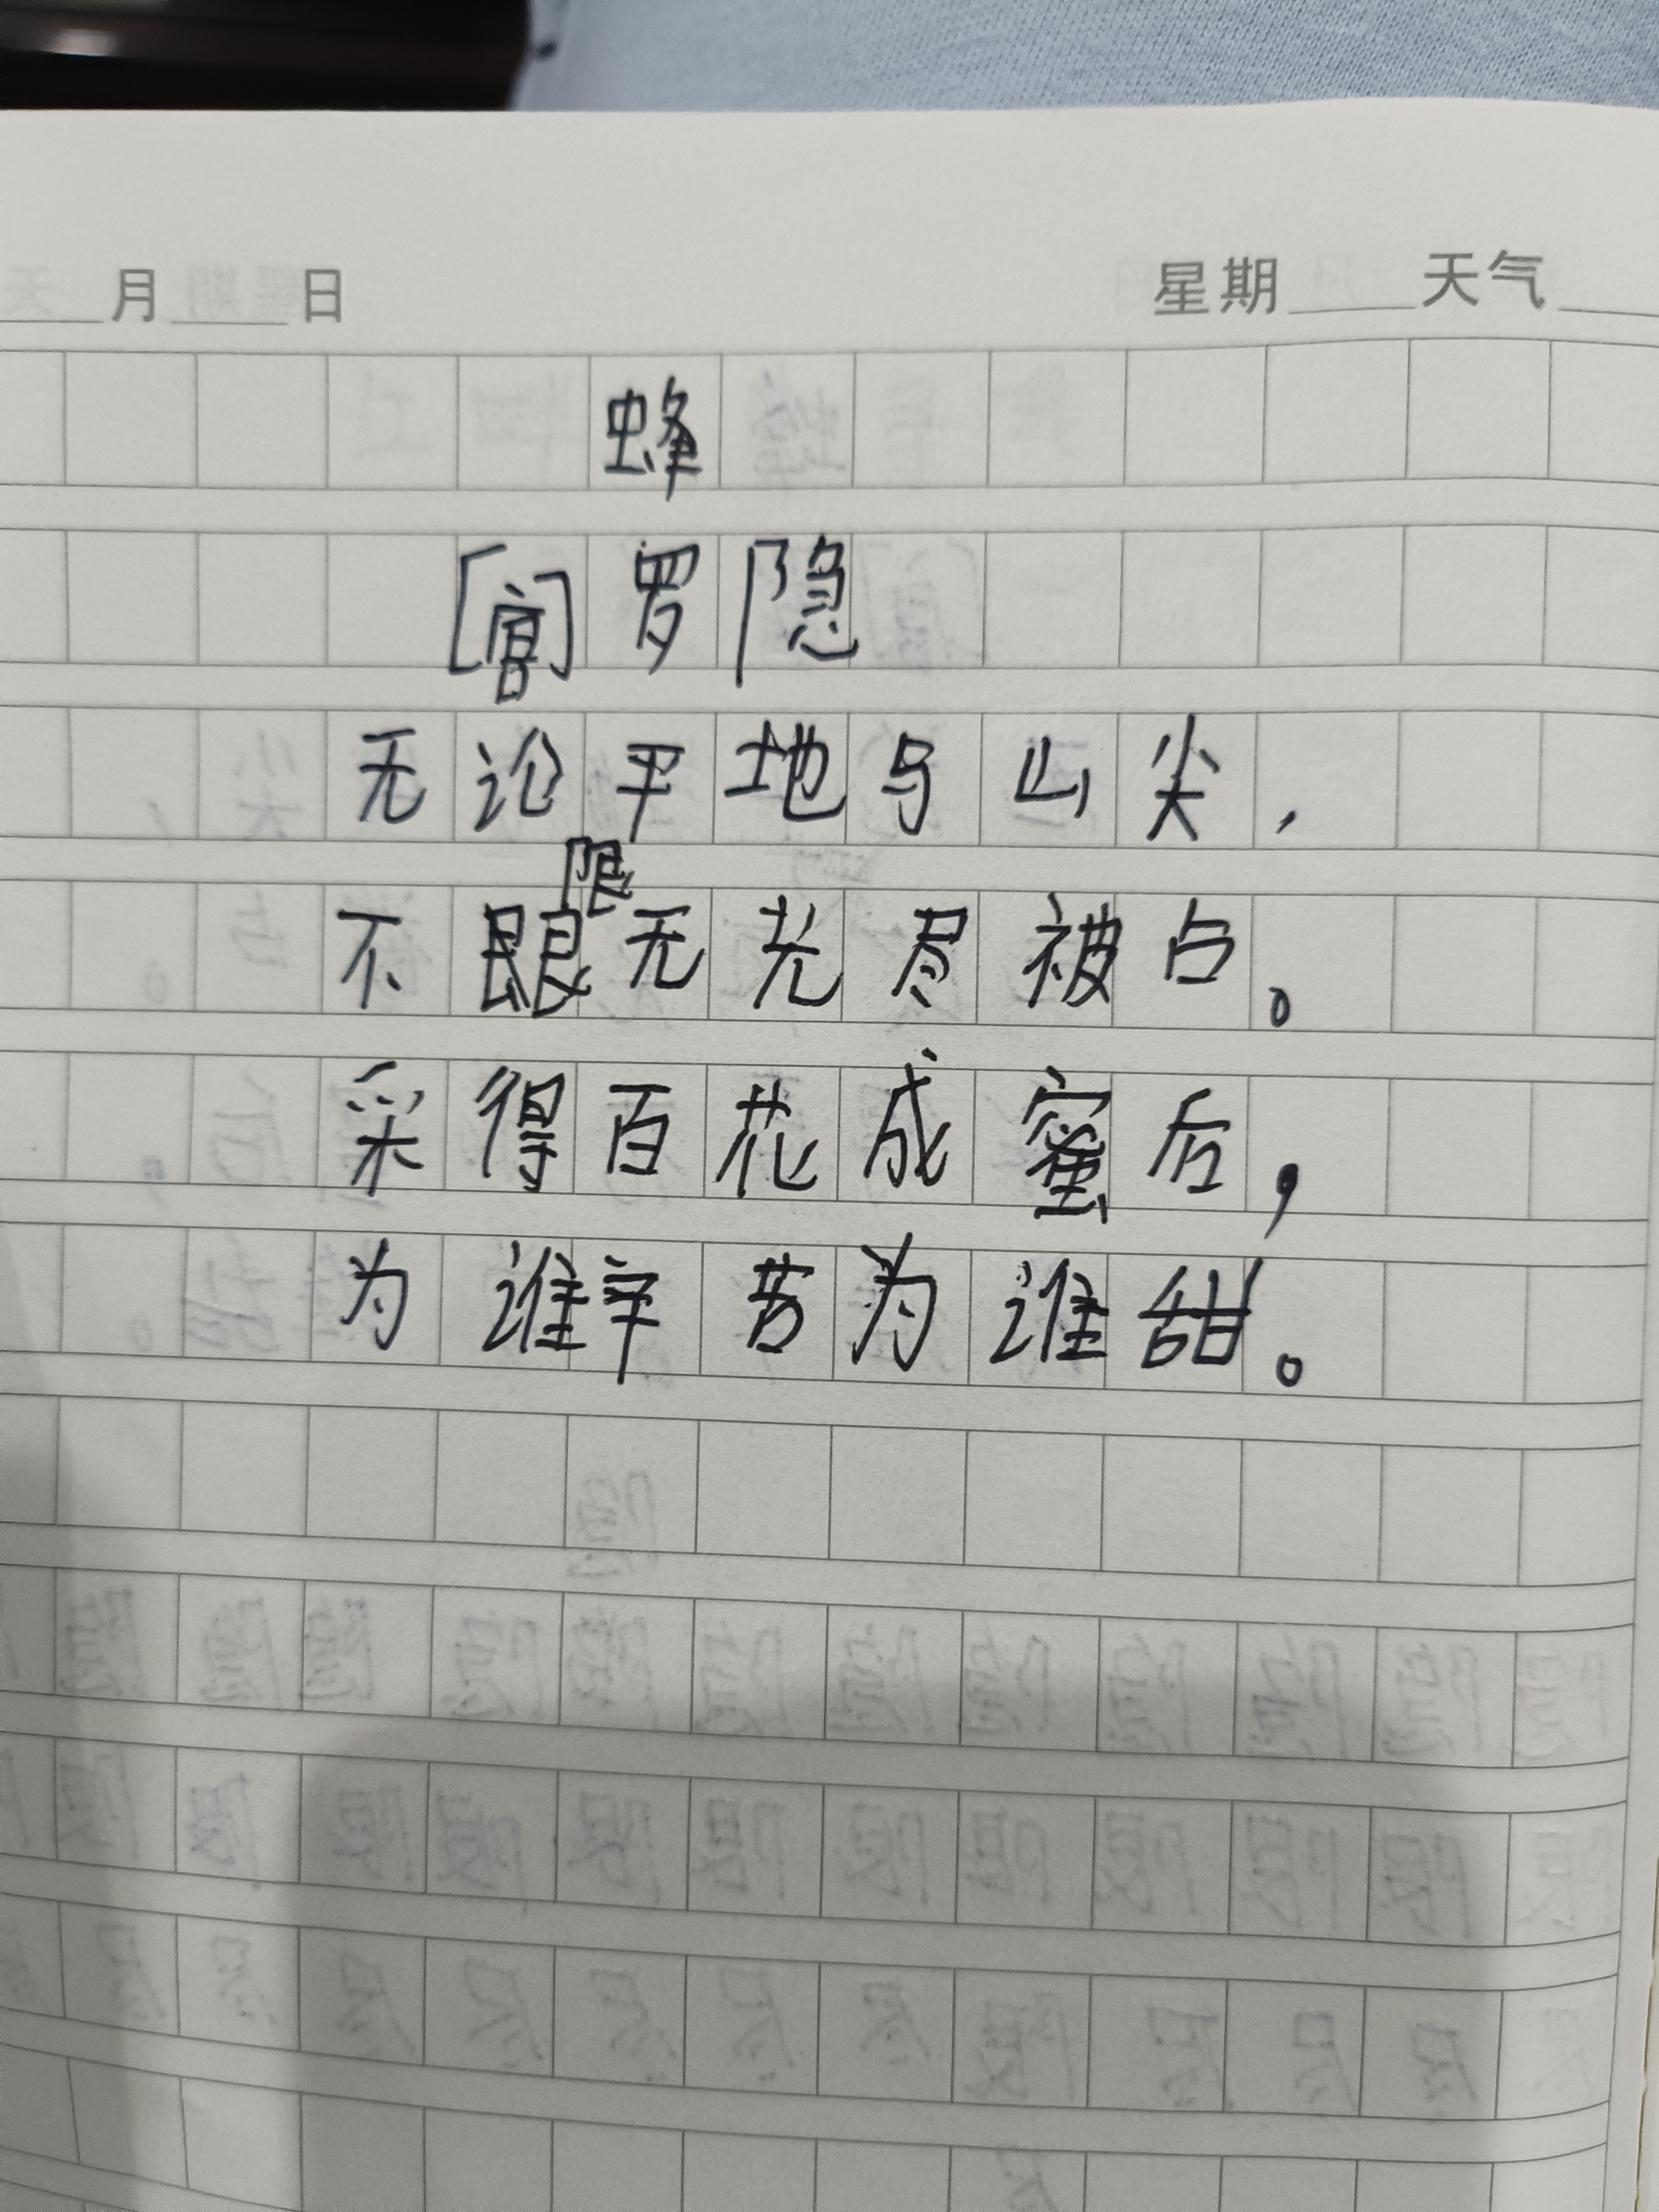 月 日 星期 天气
蜂
[唐]罗隐
无论平地与山尖，
限
不无光尽被占。
采得百花成蜜后，
为谁辛苦为谁甜。